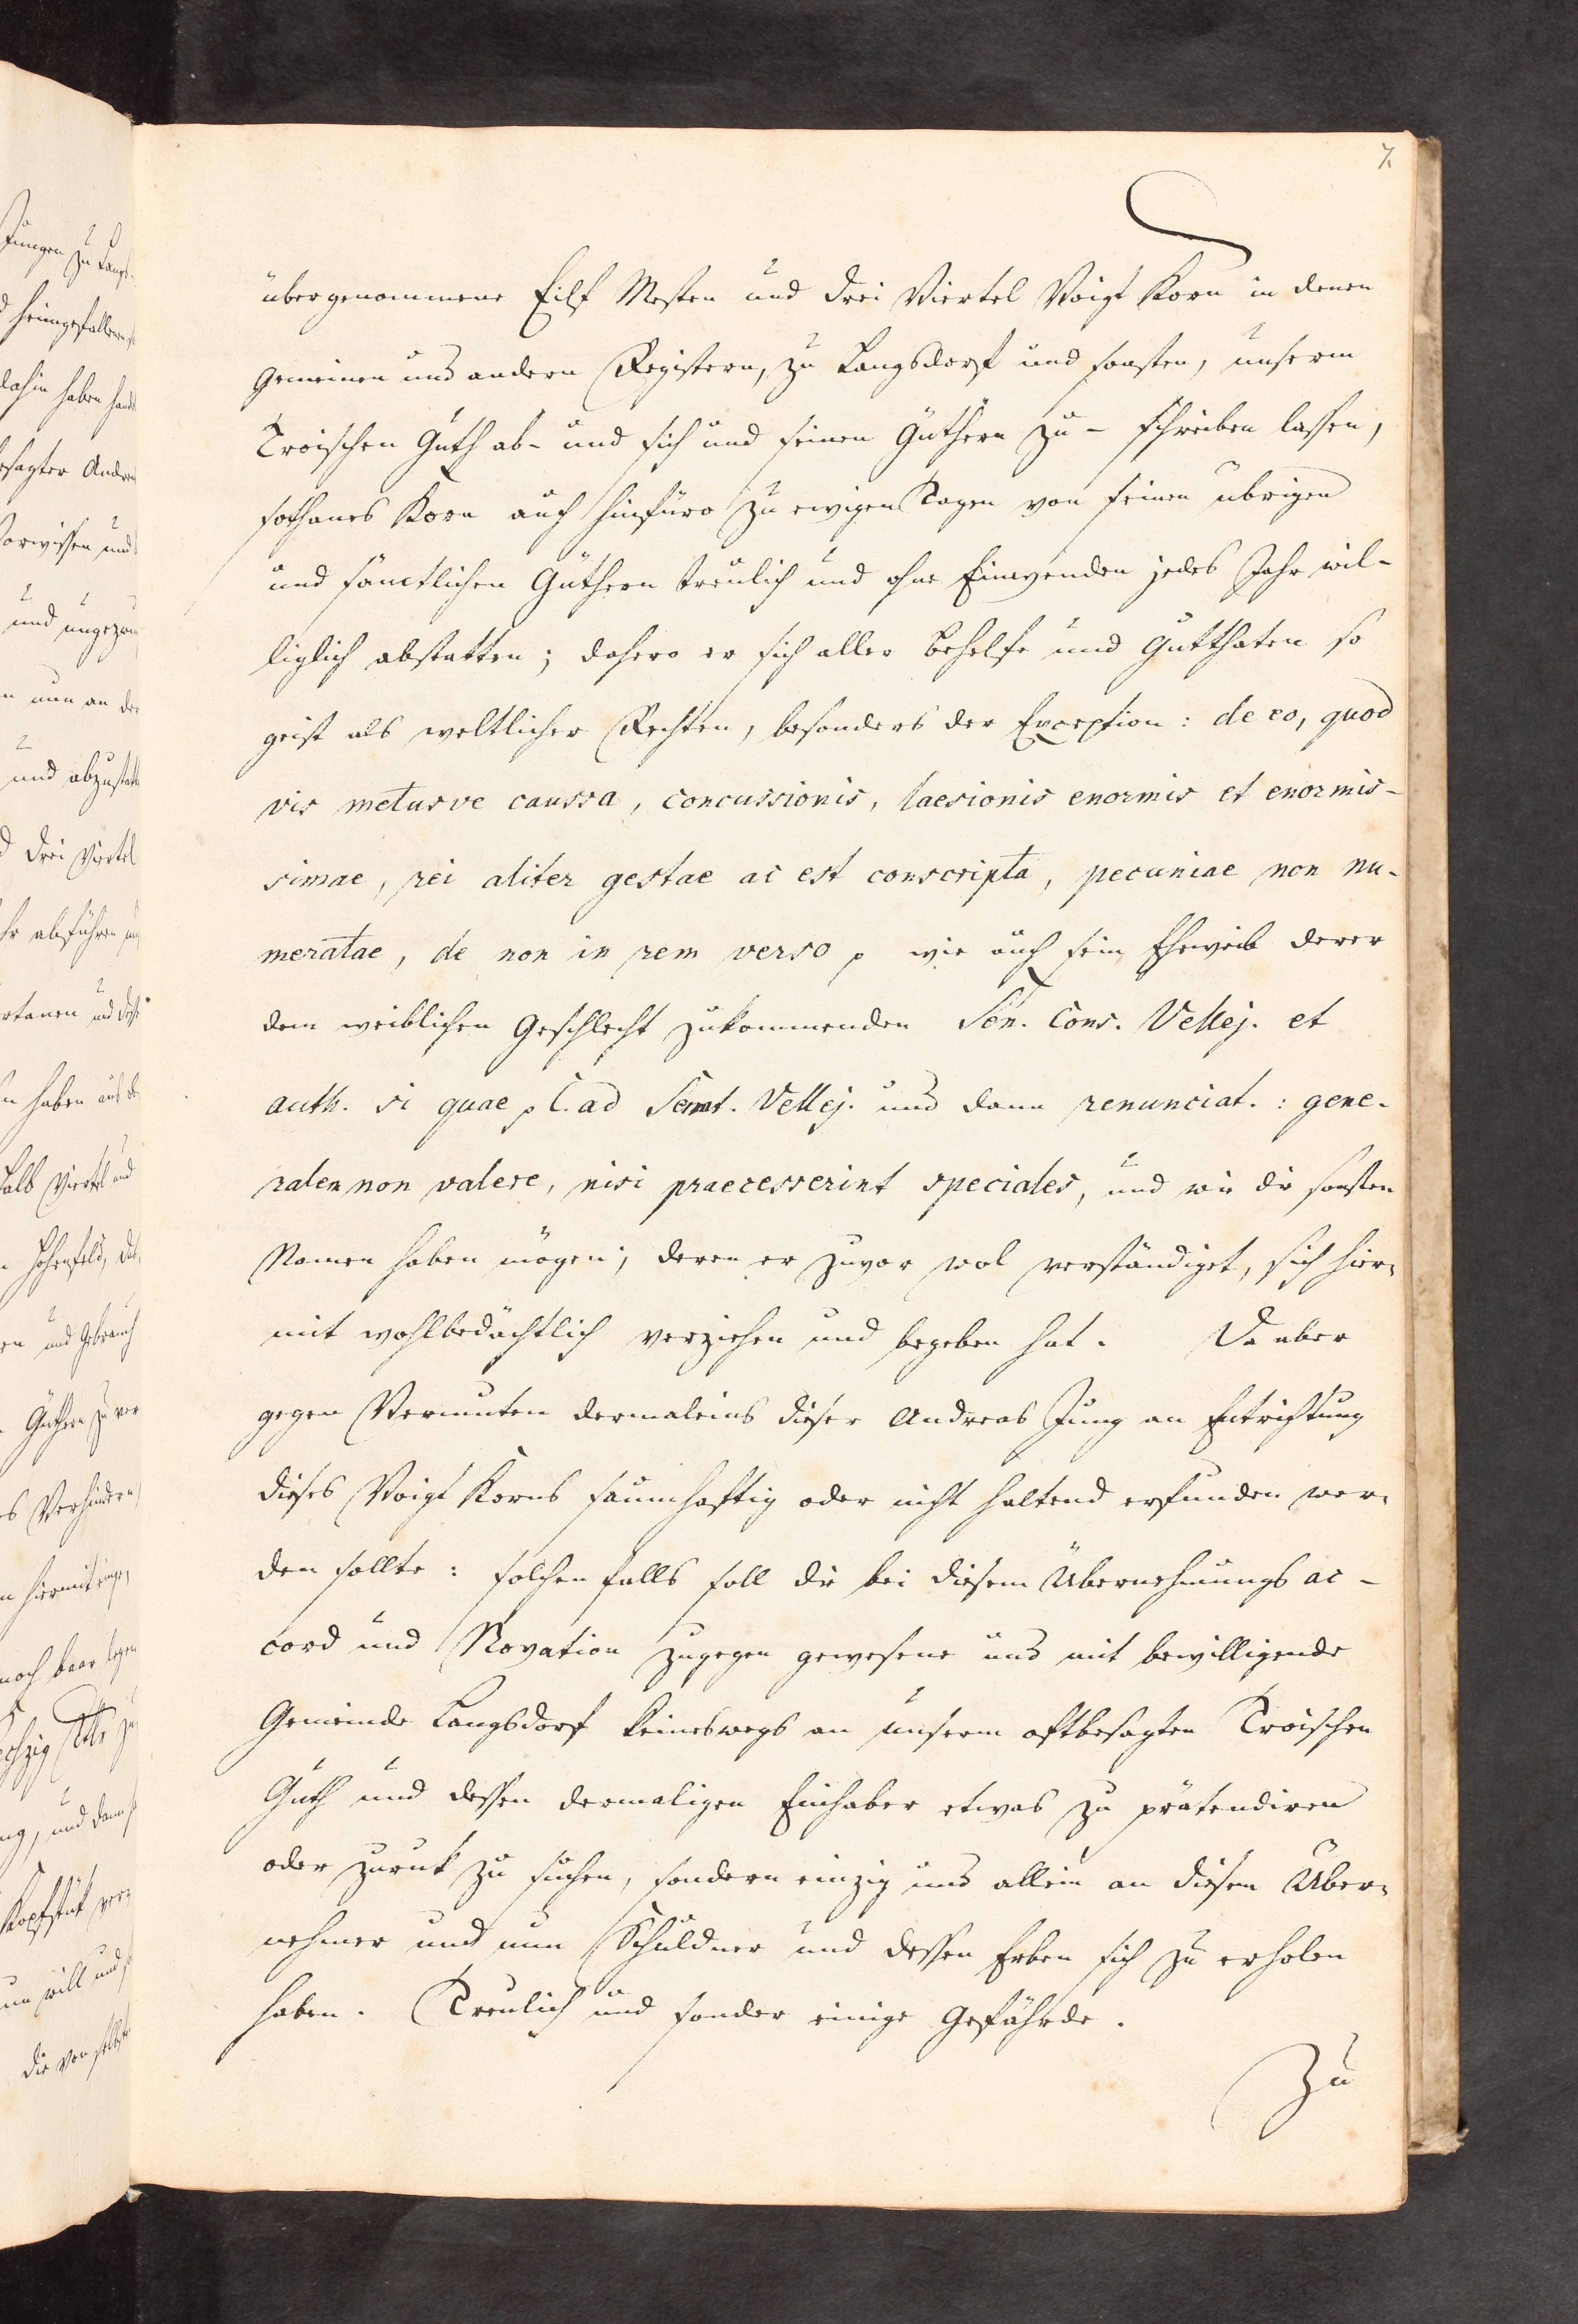 7.
übergenommene Eilf Mesten und drei Viertel Voigt Korn in denen
Gemeinen und andern Registern, zu Langsdorf und sonsten, unserm
Troischen Guth ab- und sich und seinen Güthern zu- schreiben lassen,
sothanes Korn auch hinfüro zu ewigen Tagen von seinen übrigen
und sämtlichen Güthern treulich und ohne Einwenden jedes Jahr wil-
liglich abstatten; dahero er sich aller Behelfe und Gutthaten so
geist als weltlicher Rechten, besonders der Exception: de eo, quod
vis metusve caussa, concussionis, laesionis enormis et enormis-
simae, rei aliter gestae ac est conscripta, pecuniae non nu-
meratae, de non in rem verso p wie auch sein Eheweib derer
dem weiblichen Geschlecht zukommenden Sen. Cons. Vellej. et
auth. si quae p C. ad Senat. Vellej. und dann renunciat.: gene-
rales non valere, nisi praecesserint speciales, und wie die sonsten
Namen haben mögen; deren er zuvor wol verständiget, sich hier-
mit wohlbedächtlich verziehen und begeben hat. Da aber
gegen Vermuten dermaleins dieser Andreas Jung an Entrichtung
dieses Voigt Korns saumhaftig oder nicht haltend erfunden wer-
den sollte: solchen falls soll die bei diesem Übernehmungs ac-
cord und Novation zugegen gewesene und mit bewilligende
Gemeinde Langsdorf keineswegs an unserm oftbesagten Troischen
Guth und dessen dermaligen Einhaber etwas zu prätendiren
oder zuruk zu suchen, sondern einzig und allein an diesen Über-
nehmer und nun Schuldner und dessen Erben sich zu erholen
haben. Treulich und sonder einige Gefährde.
Zu